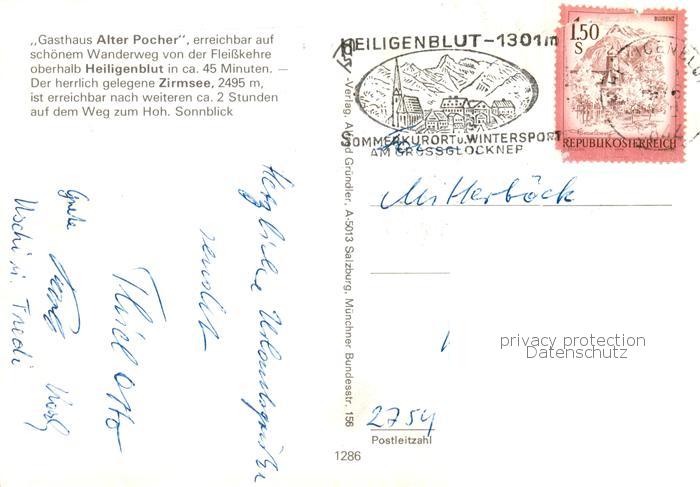 „Gasthaus Alter Pocher“, erreichbar auf
schönem Wanderweg von der Fleißkehre
oberhalb Heiligenblut in ca. 45 Minuten. —
Der herrlich gelegene Zirmsee, 2495 m,
ist erreichbar nach weiteren ca. 2 Stunden
auf dem Weg zum Hoh. Sonnblick
Herzliche Urlaubsgrüße
sendet
Grete
Uschi u. Friedi
Verlag, Alfred Gründler, A-5013 Salzburg, Münchner Bundesstr. 156
HEILIGENBLUT-1301m
SOMMERKURORT u. WINTERSPORT
AM GROSSGLOCKNER
BLUDENZ
1.50
S
REPUBLIK ÖSTERREICH
Mitterböck
privacy protection
Datenschutz
2754
Postleitzahl
1286